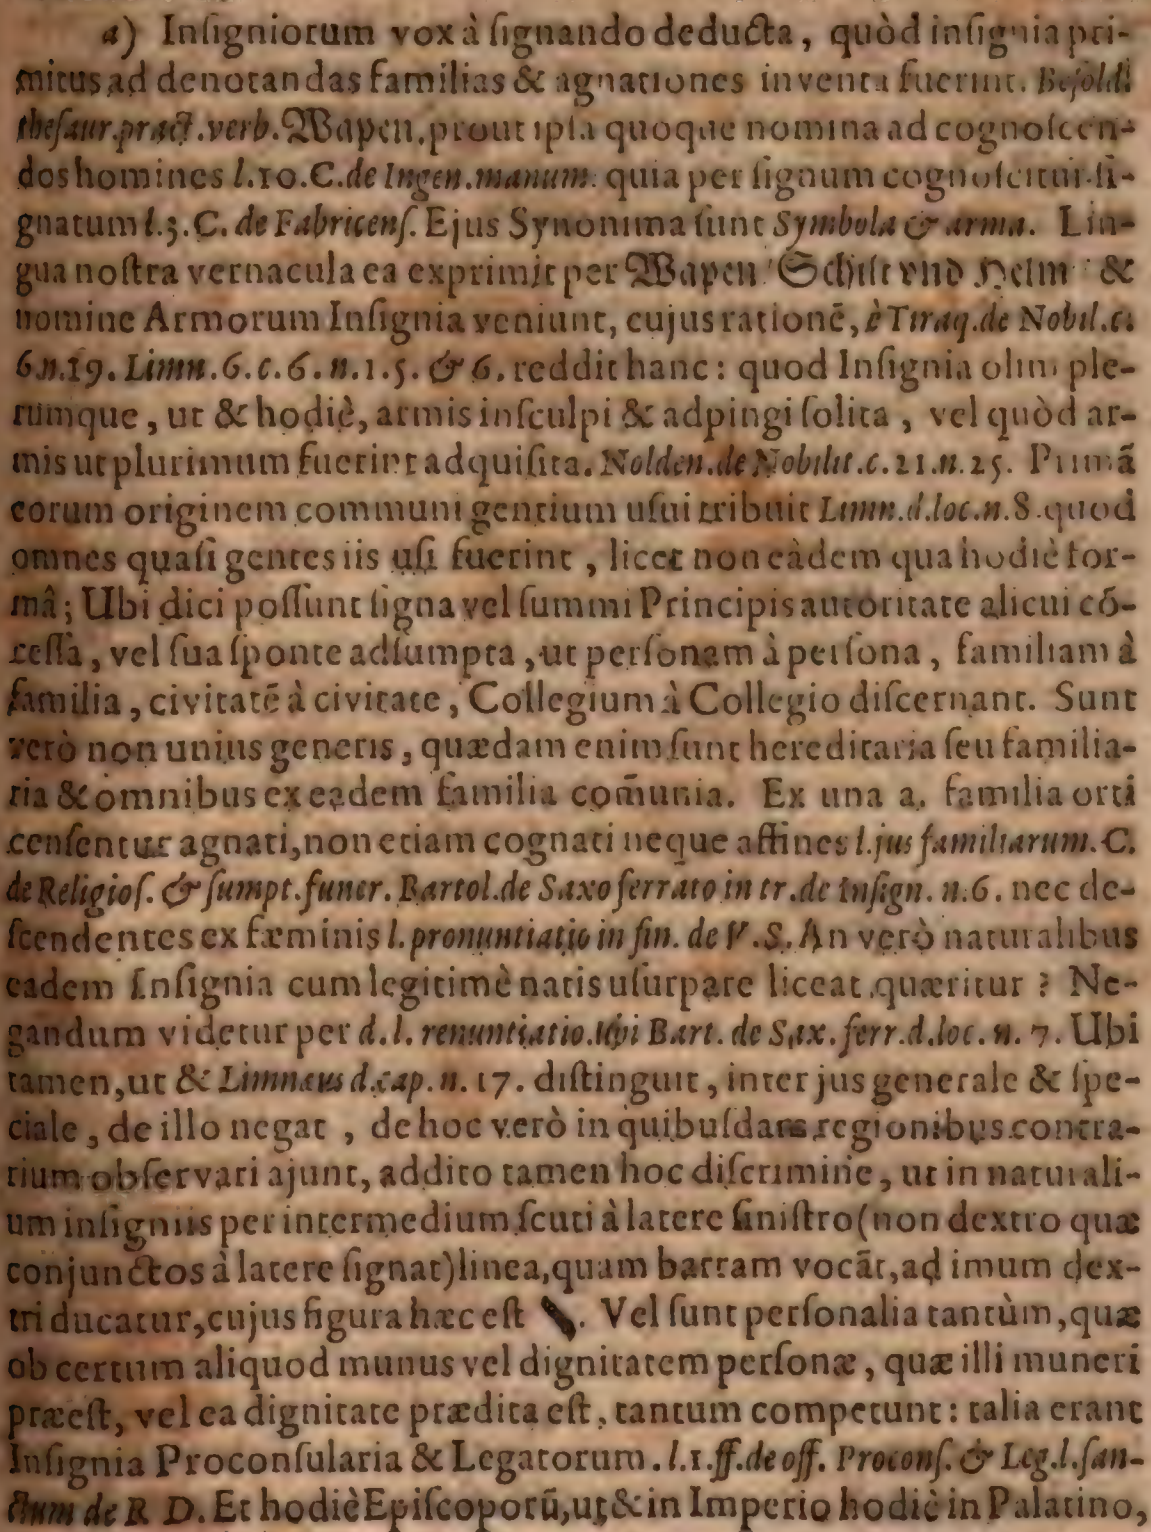 a) Inſigniorum vox à ſignando deducta, quòd inſignia pri-
mitus ad denotandas familias & agnationes inventa fuerint. Beſoldi
theſaur. pract. verb. Wapen. prout ipſa quoque nomina ad cognoſcen-
dos homines l. 10. C. de Ingen. manum. quia per ſignum cognoſcitur ſi-
gnatum l. 3. C. de Fabricenſ. Ejus Synonima ſunt Symbola & arma. Lin-
gua noſtra vernacula ea exprimit per Wapen Schilt vnd Helm &
nomine Armorum Inſignia veniunt, cujus rationē, è Tiraq. de Nobil. c.
6. n. 19. Limn. 6. c. 6. n. 1. 5. & 6. reddit hanc: quod Inſignia olim ple-
rumque, ut & hodiè, armis inſculpi & adpingi ſolita, vel quòd ar-
mis ut plurimum fuerint adquiſita. Nolden. de Nobilit. c. 21. n. 25. Primā
eorum originem communi gentium uſui tribuit Limn. d. loc. n. 8. quod
omnes quaſi gentes iis uſi fuerint, licet non eàdem qua hodiè for-
mâ; Ubi dici poſſunt ſigna vel ſummi Principis autoritate alicui cō-
ceſſa, vel ſua ſponte adſumpta, ut perſonam à perſona, familiam à
familia, civitatē à civitate, Collegium à Collegio diſcernant. Sunt
verò non unius generis, quædam enim ſunt hereditaria ſeu familia-
ria & omnibus ex eadem familia com̄unia. Ex una a. familia orti
cenſentur agnati, non etiam cognati neque affines l. jus familiarum. C.
de Religioſ. & ſumpt. funer. Bartol. de Saxo ferrato in tr. de Inſign. n. 6. nec de-
ſcendentes ex fæminis l. pronuntiatio in fin. de V. S. An verò naturalibus
eadem Inſignia cum legitimè natis uſurpare liceat quæritur? Ne-
gandum videtur per d. l. renuntiatio. ubi Bart. de Sax. ferr. d. loc. n. 7. Ubi
tamen, ut & Limnæus d. cap. n. 17. diſtinguit, inter jus generale & ſpe-
ciale, de illo negat, de hoc verò in quibuſdam regionibus contra-
rium obſervari ajunt, addito tamen hoc diſcrimine, ut in naturali-
um inſigniis per intermedium ſcuti à latere ſiniſtro (non dextro quæ
conjunctos à latere ſignat) linea, quam barram vocāt, ad imum dex-
tri ducatur, cujus figura hæc eſt . Vel ſunt perſonalia tantùm, quæ
ob certum aliquod munus vel dignitatem perſonæ, quæ illi muneri
præeſt, vel ea dignitate prædita eſt, tantum competunt: talia erant
Inſignia Proconſularia & Legatorum. l. 1. ff. de off. Proconſ. & Leg. l. ſan-
ctum de R. D. Et hodiè Epiſcoporū, ut & in Imperio hodiè in Palatino,